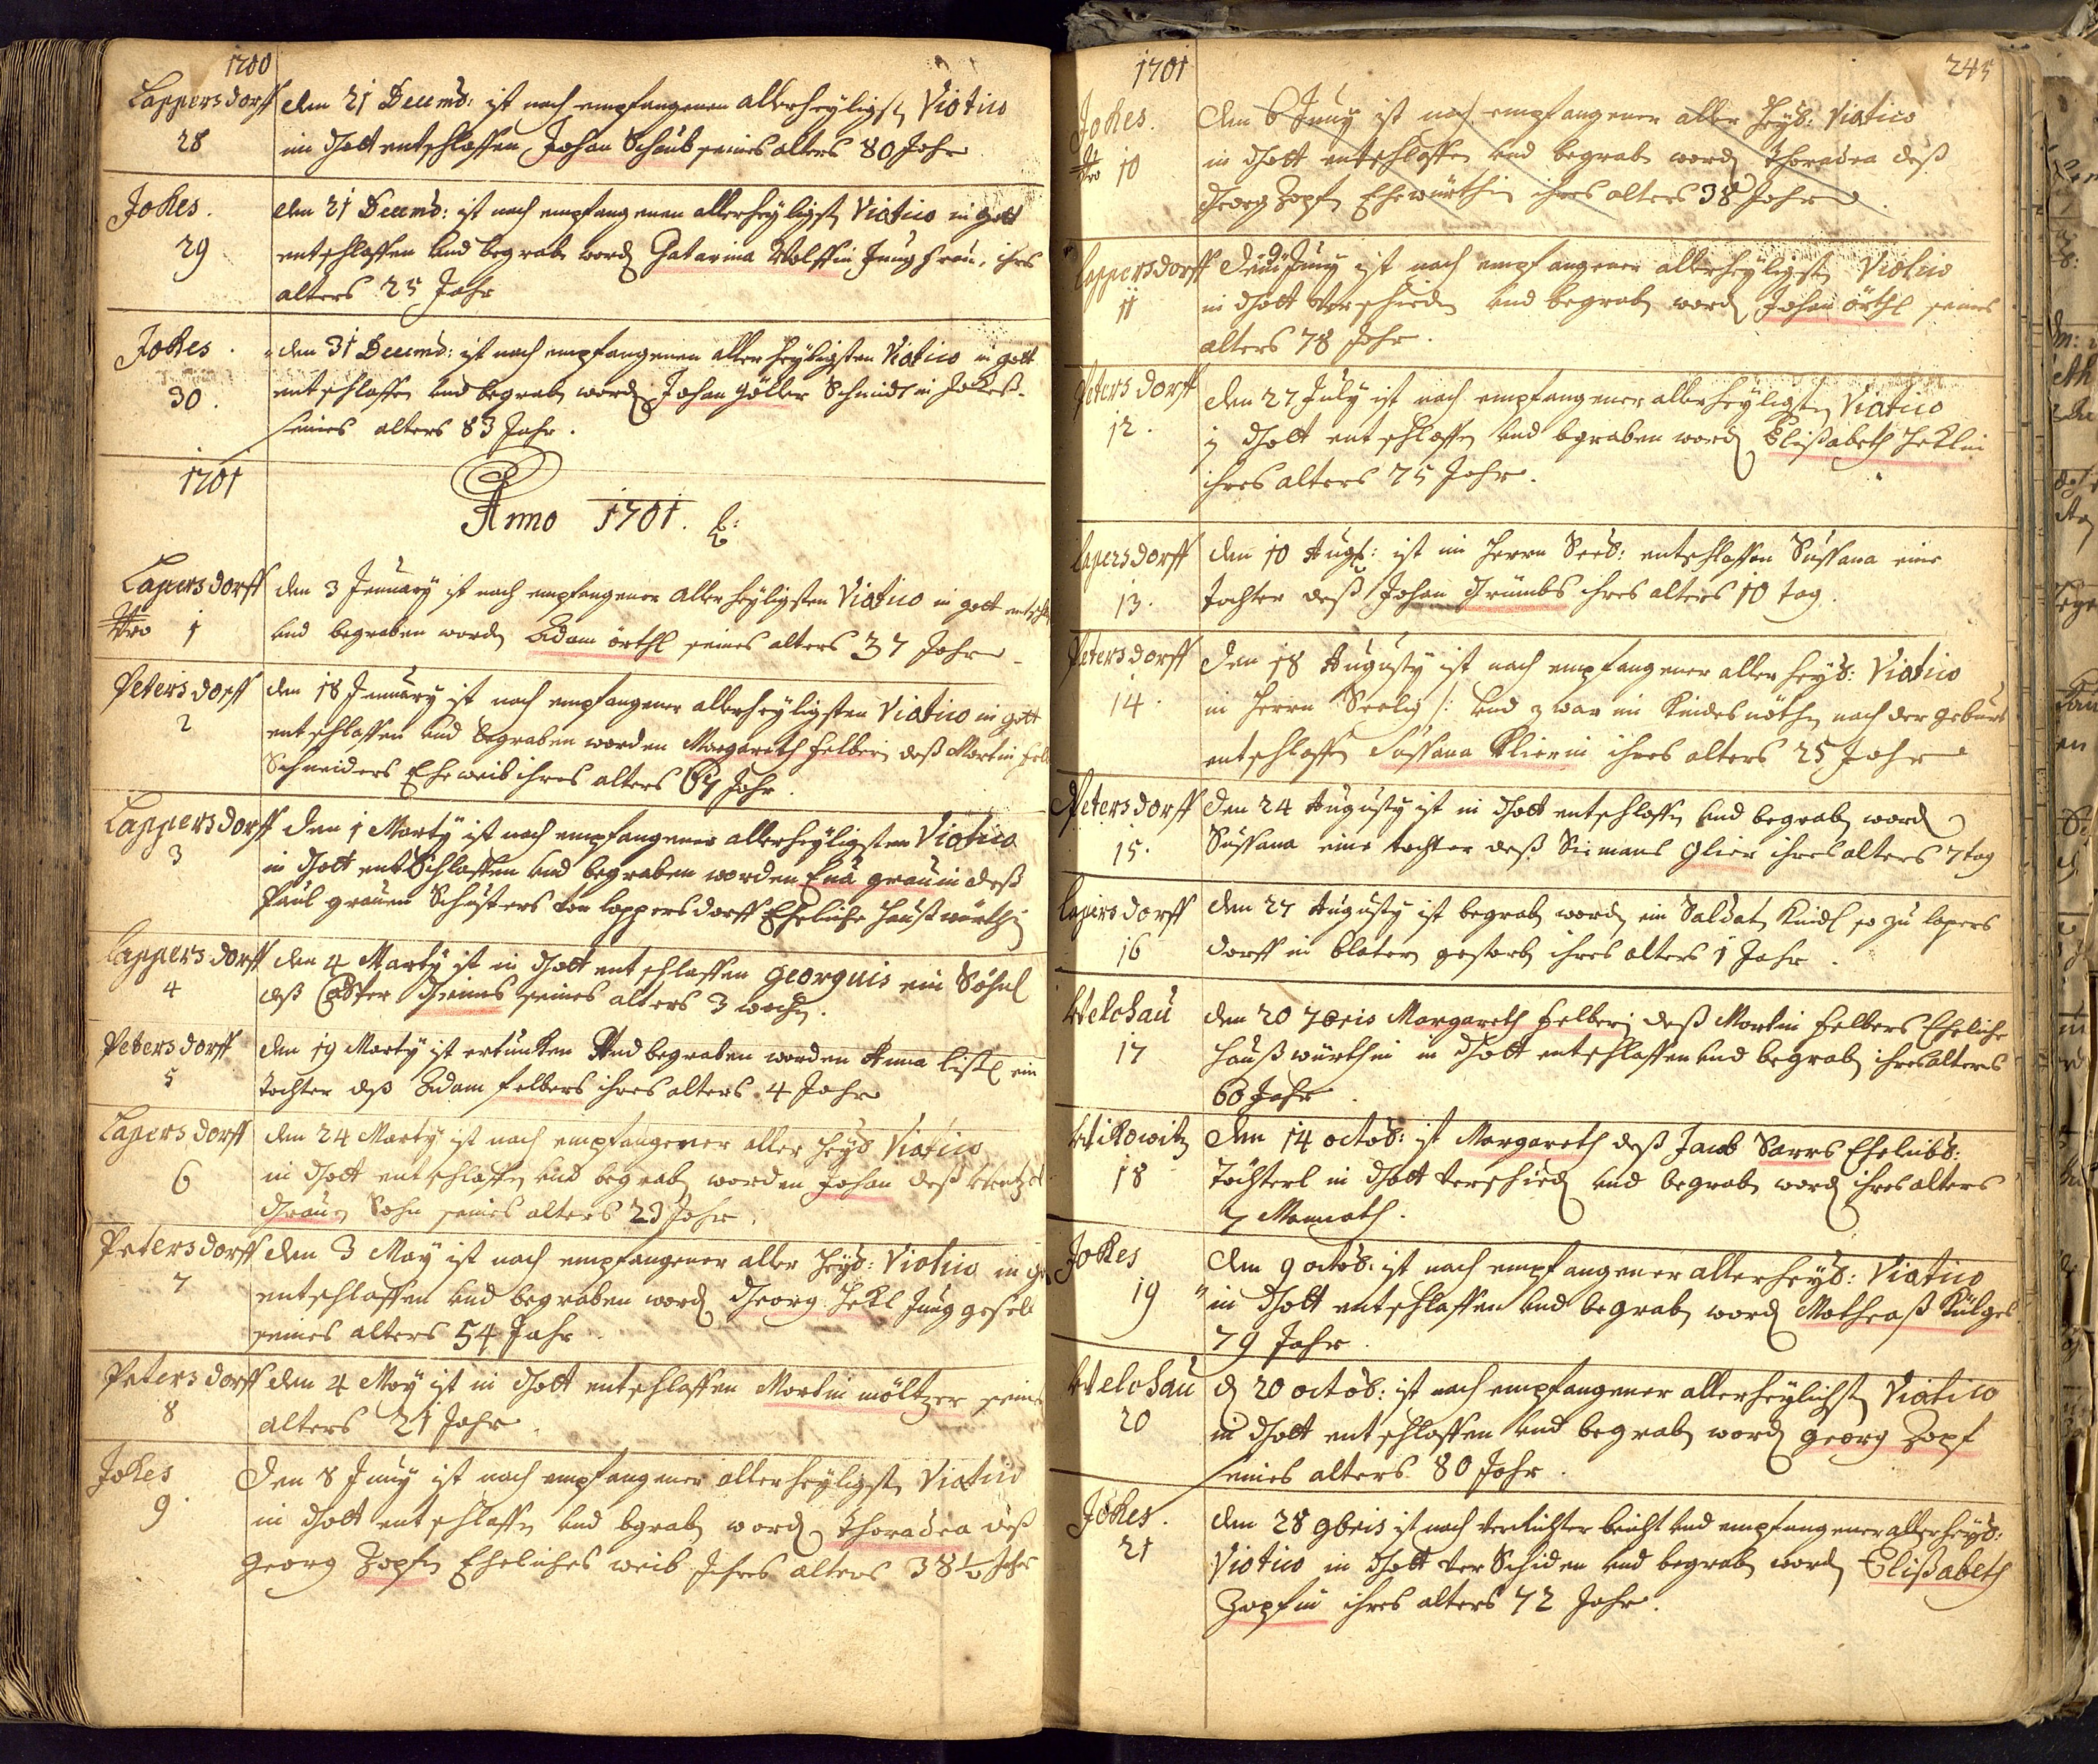 1700
Lappersdorff den 21 Decemb: ist nach empfangenen allerheyligst Viatico
28 in Gott entschlaffen Johan Schaub seines alters 80 Jahr
Jokes. den 21 Decemb: ist nach empfangenen allerheyligst Viatico in gott
29 entschlaffen und begrab word Catarina Wolffin Jungfrau, ihres
alters 25 Jahr
Jokes. den 31 Decemb: ist nach empfangenen allerheyligsten Viatico in gott
30. entschlaffen und begrab word Johan Göller Schmidt in Jokeß.
seines alters 83 Jahr.
1701
Anno 1701.
Lapersdorff den 3 January ist nach empfangenen allerheyligsten Viatico in gott
Nro 1 und begraben word Adam örthl seines alters 37 Jahr
Petersdorff den 18 January ist nach empfangener allerheyligsten Viatico in gott
2 entschlaffen und begraben worden Margareth Felberin deß Martin
Schneiders Eheweib ihres alters 64 Jahr.
Lappersdorff den 1 Marty ist nach empfangener allerheyligsten Viatico
3 in Gott entschlaffen und begraben worden Eua grauin deß
Paul grauen Schusters von lappersdorff Eheliche Haußwürthin
Lappersdorff den 4 Marty ist in Gott entschlaffen georguis ein Söhnl
4 deß Casper seines alters 3 woch.
Petersdorff den 19 Marty ist ertunken und begraben worden Anna ein
5 tochter deß Adam Felbers ihres alters 4 Jahr
Lapersdorff den 24 Marty ist nach empfangener aller heyl Viatico
6 in Gott entschlaffen und begrab worden Johan deß
Grauen Sohn seines alters 23 Jahr.
Petersdorff den 3 May ist nach empfangener aller heyl: Viatico in
7 entschlaffen und begraben word Georg Hekl Junggesell
seines alters 54 Jahr.
Petersdorff den 4 May ist in Gott entschlaffen Martin möltzer seines
8 alters 21 Jahr.
Jokes den 8 Juny ist nach empfangener allerheyligst Viatico
9. in Gott entschlaffen und begrab word thoradea deß
Georg Zopfen Eheliches weib ihres alters 38 1/2 Jahr
1701 245
Jokes. den 6 Juny ist nach empfangener aller heyl: Viatico
Nro 10 in Gott entschlaffen und begrab word thoradea deß
Georg Zopfen Ehewürthin ihres alters 38 Jahr.
Lappersdorff den 9 Juny ist nach empfangener allerheyligst Viatico
11 in Gott verschieden und begrab word Johan örthl seines
alters 78 Jahr.
Petersdorff den 27 July ist nach empfangener allerheyligsten Viatico
12. in Gott entschlaffen und begraben word Elißabeth Heklin
ihres alters 75 Jahr.
Lapersdorff den 10 Augst: ist im Herrn Seel: entschlaffen Sussana eine
13. tochter deß Johan Grümbs ihres alters 10 tag.
Petersdorff den 18 Augusty ist nach empfangener allerheyl: Viatico
14. in Herrn Seelig /: und zwar in Kindesnöthen nach der geburt
entschlaffen Sussana Klierin ihres alters 25 Jahr
Petersdorff den 24 Augusty ist in Gott entschlaffen und begrab word
15. Sussana eine tochter deß Simans Glier ihres alters 7 tag
Lapersdorff den 27 Augusty ist begrab word ein Saldat Kindl so zu lapers
16 dorff in blatern gestorb ihres alters 1 Jahr.
Welchau den 20 7bris Margareth Felberin deß Martin Felbers Eheliche
17 Haußwürthin in Gott entschlaffen und begrab ihres alters
60 Jahr.
Wikowitz den 14 octob: ist Margareth deß Jacob Sarrs Ehelibs:
18 Töchterl in Gott verschied und begrab word ihres alters
7 Monath.
Jokes den 9 octob: ist nach empfangener allerheyl: Viatico
19 in Gott entschlaffen und begrab word Matheaß Külgel
79 Jahr.
Welchau d 20 octob: ist nach empfangener allerheyligst Viatico
20 in Gott entschlaffen und begrab word georg Zopf
seines alters 80 Jahr.
Jokes. den 28 9bris ist nach verrichter beicht und empfangener allerheyl:
21 Viatico in Gott verschiden und begrab word Elißabeth
Zopfin ihres alters 72 Jahr.